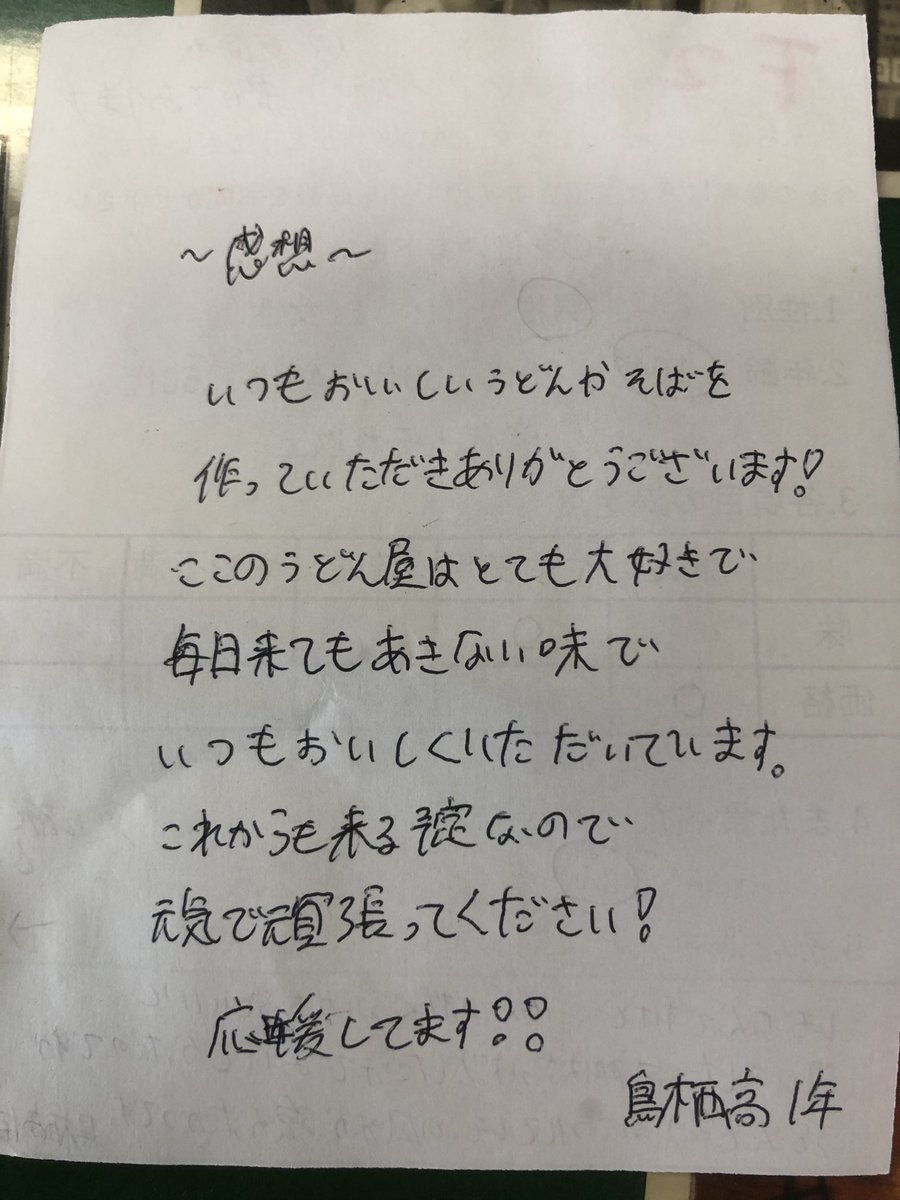 ～感想～
いつもおいしいうどんやそばを
作っていただきありがとうございます!
ここのうどん屋はとても大好きで
毎日来てもあきない味で
いつもおいしくいただいています。
これからも来る予定なので
元気で頑張ってください!
応援してます!!
鳥栖高1年